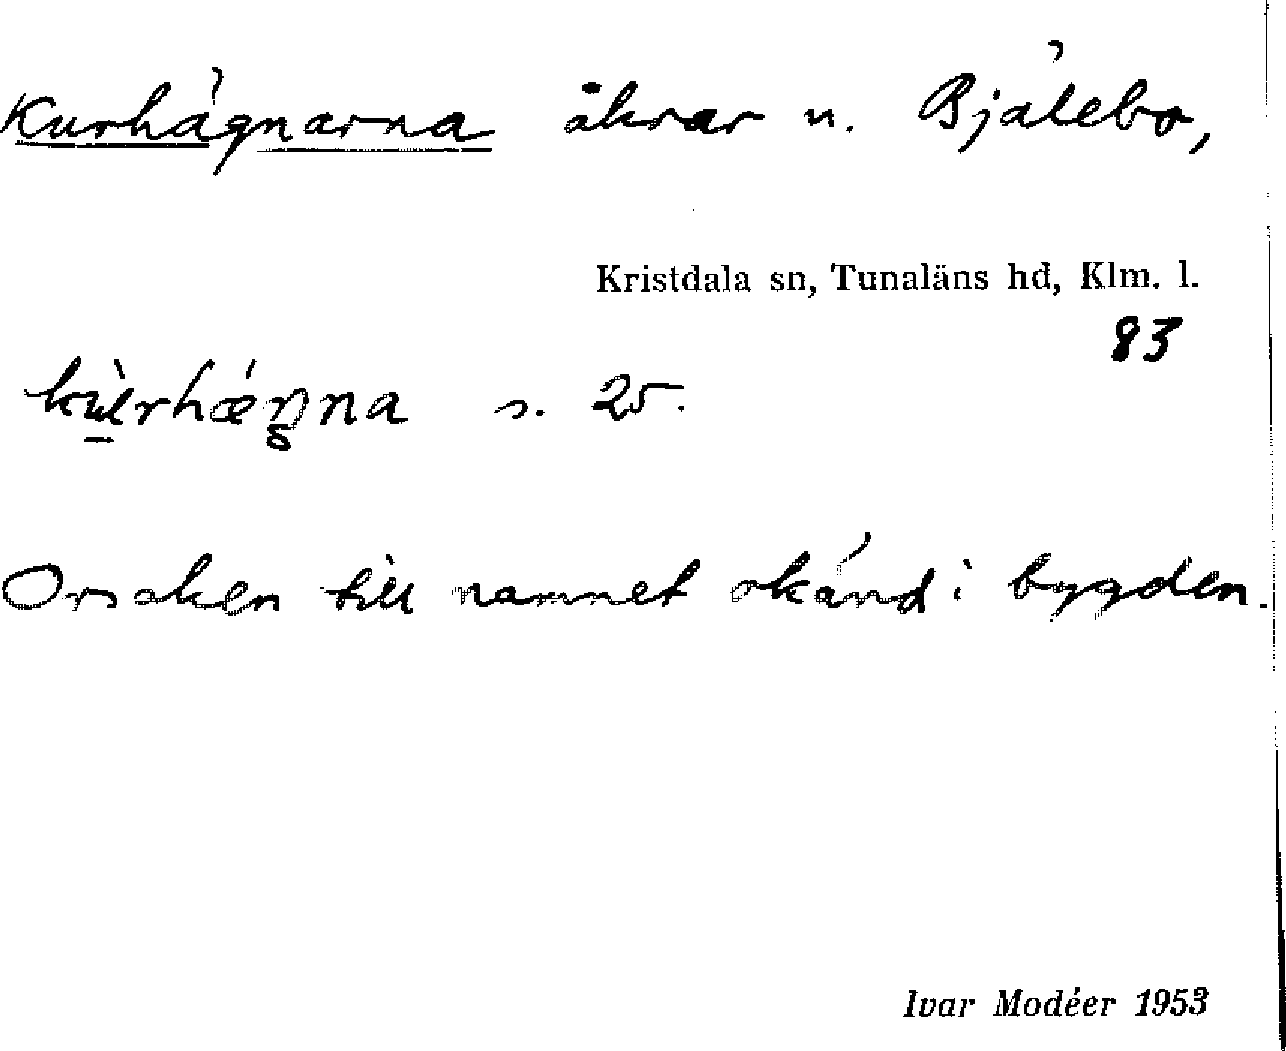 Kurhägnarna åkrar u. Bjälebo,
Kristdala sn, Tunaläns hd, Klm. l.
83
s. 25.
Orsaken till namnet okänd i bygden.
Ivar Modéer 1953